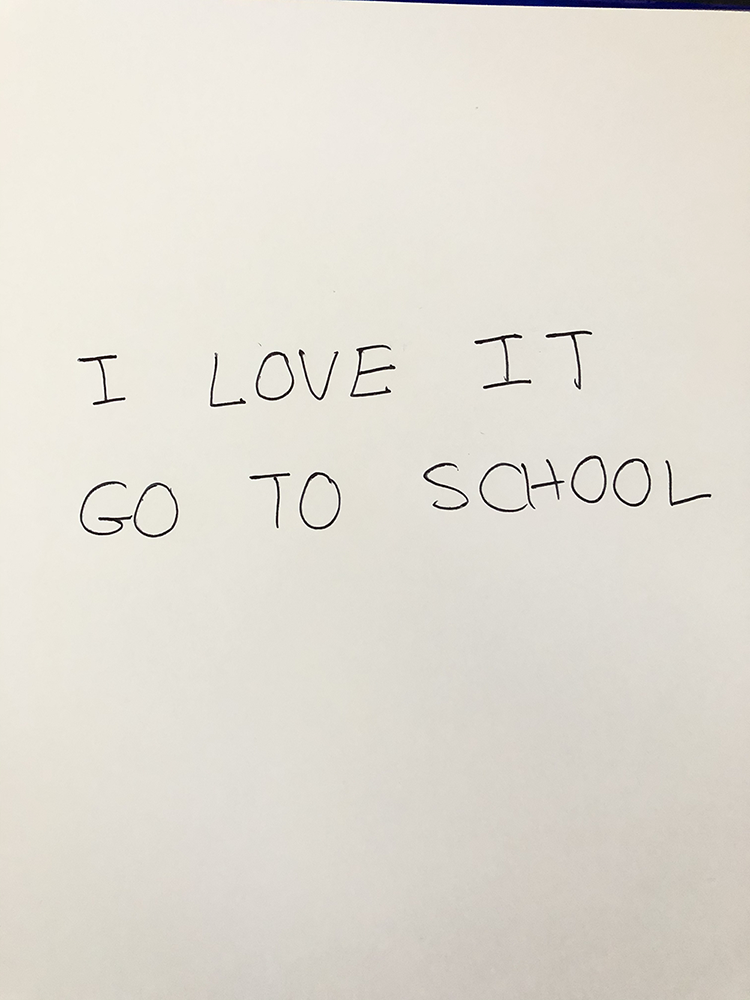 I LOVE IT
GO TO SCHOOL